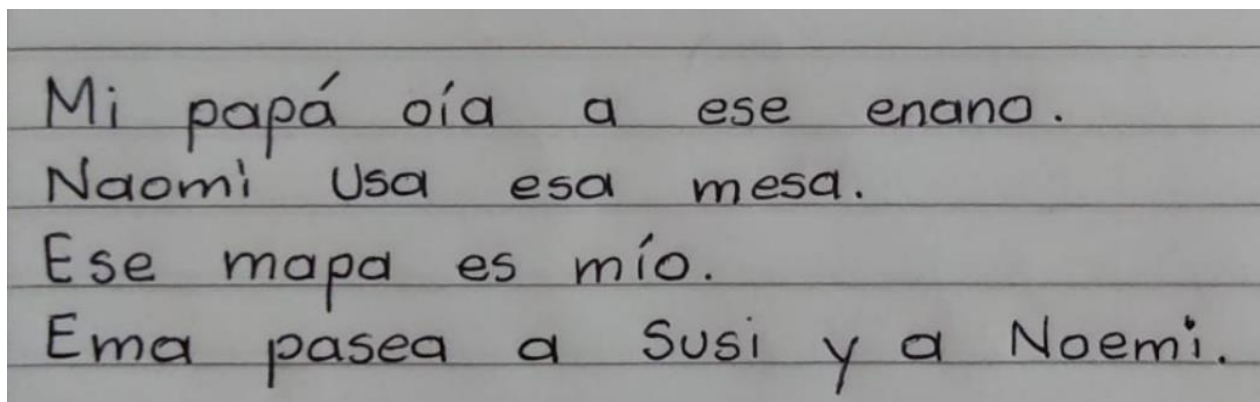 Mi papá oía a ese enano.
Naomi usa esa mesa.
Ese mapa es mío.
Ema pasea a Susi y a Noemi.